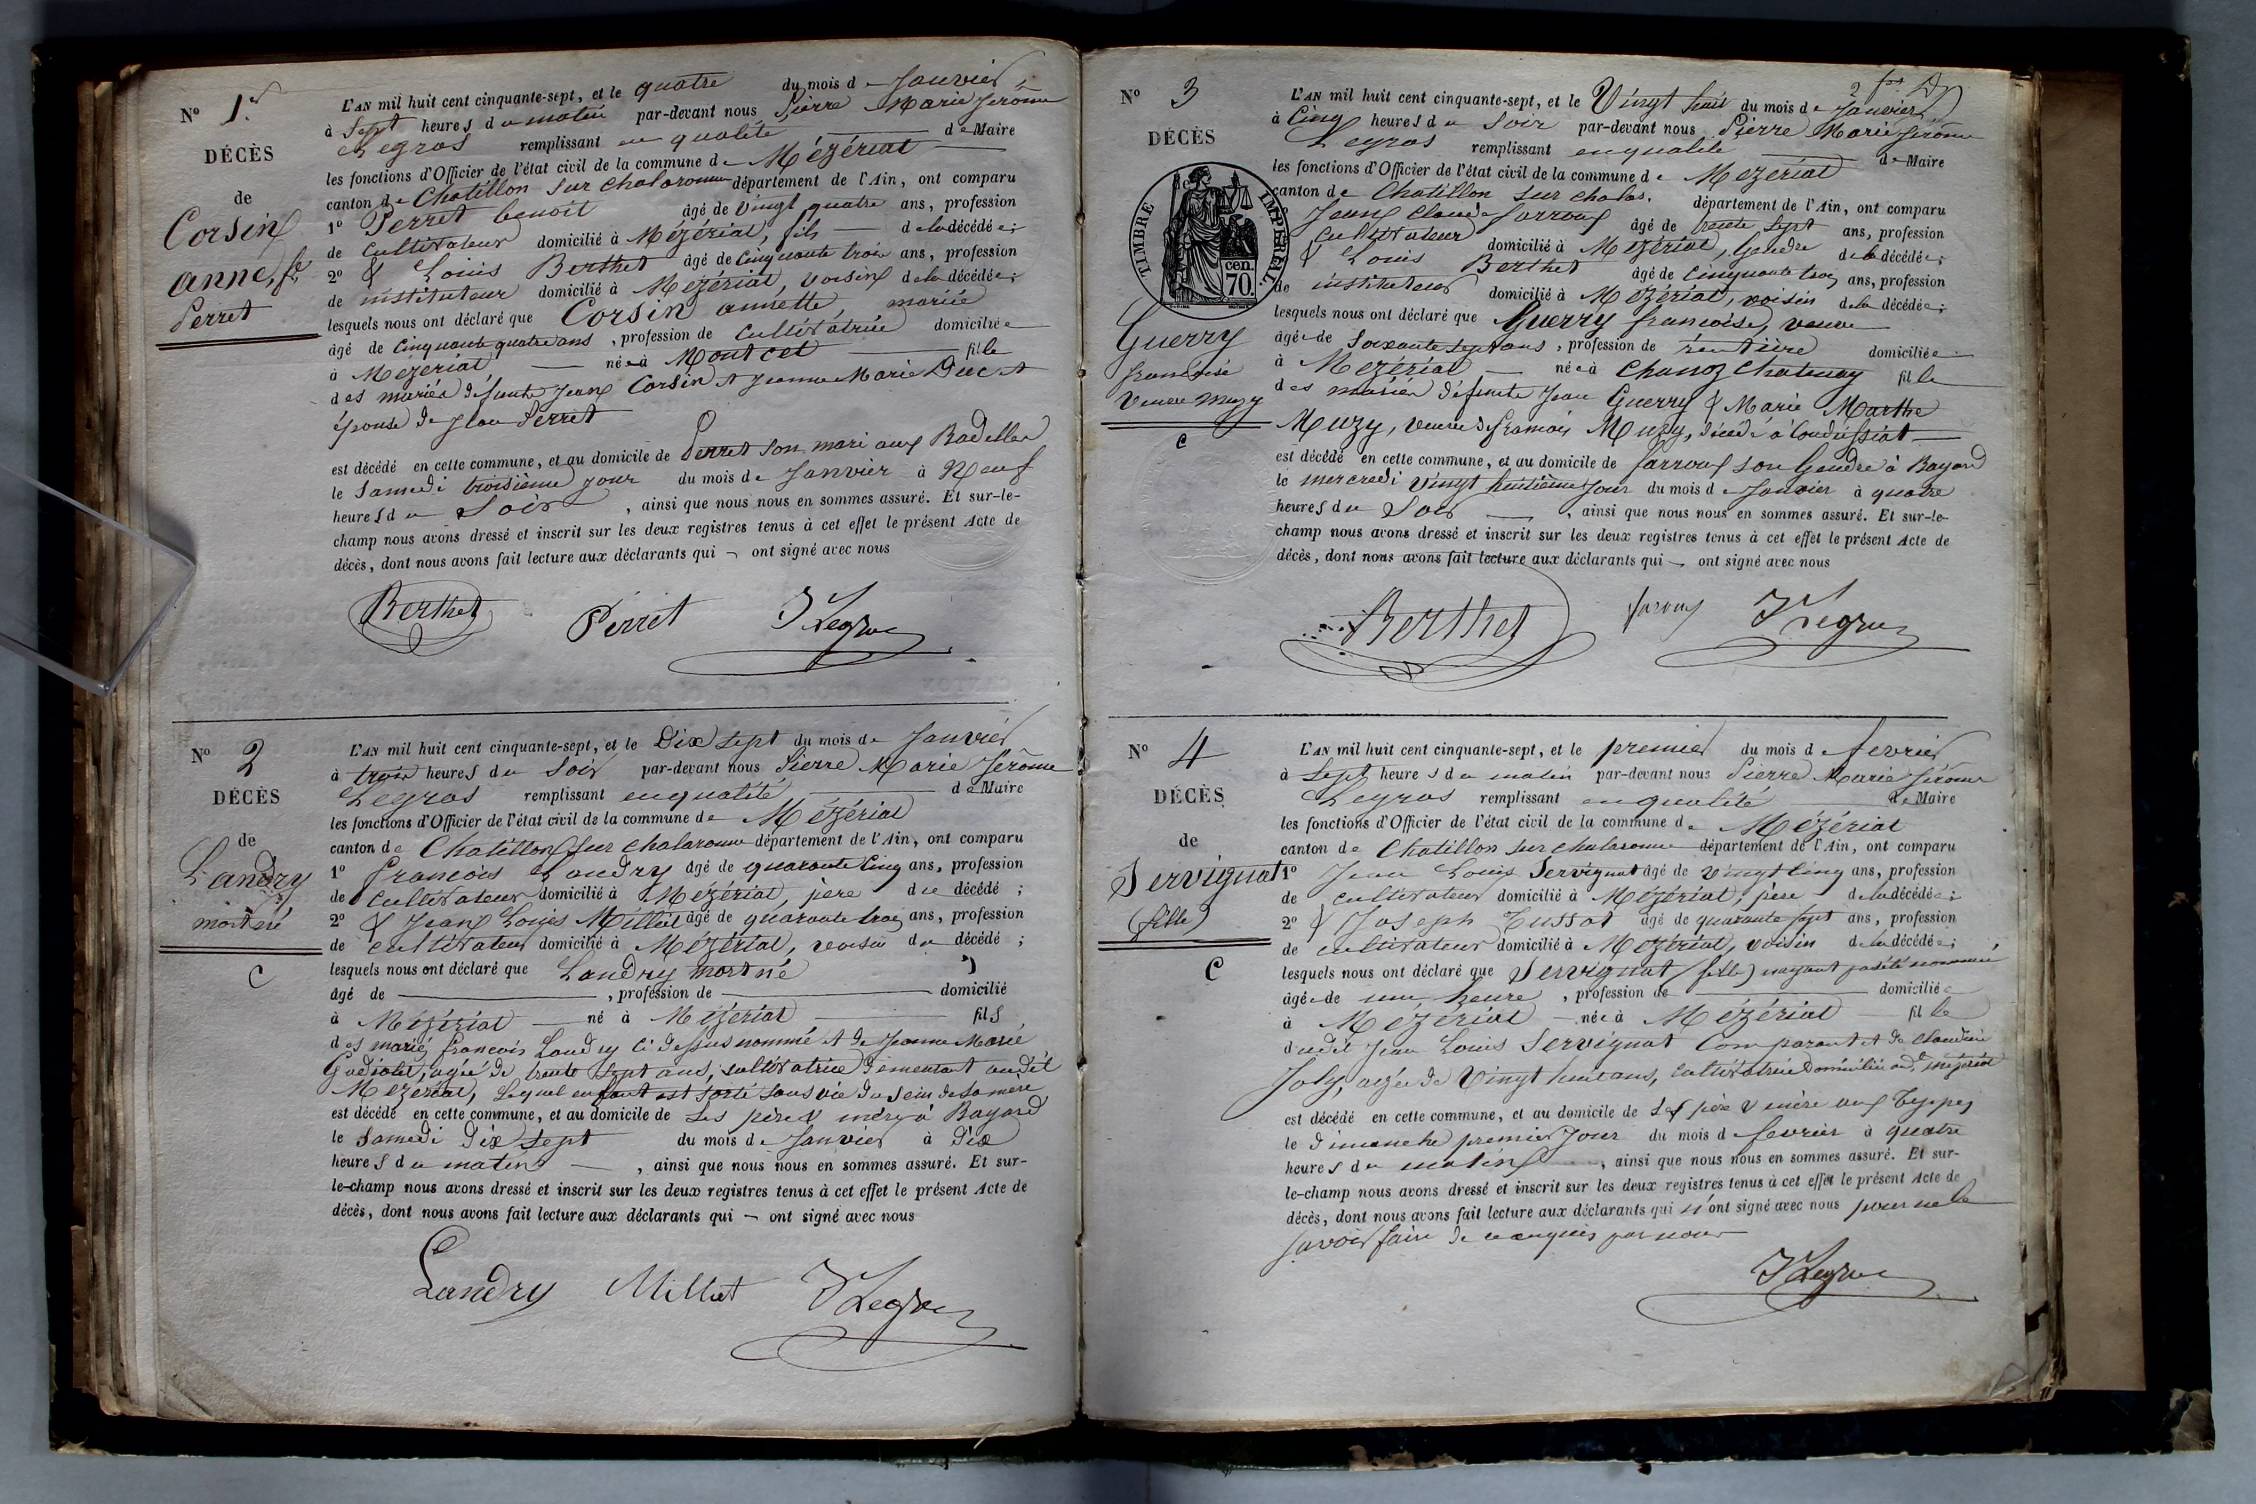 N° 1.er
DÉCÈS
de
Corsin
anne, fe
Perret
L'AN mil huit cent cinquante-sept, et le quatre du mois de Janvier
à Sept heures du matin par-devant nous Pierre Marie Jerôme
Legros remplissant en qualité de Maire
les fonctions d'Officier de l'état civil de la commune de Mézériat
canton de Chatillon sur chalaronne département de l'Ain, ont comparu
1° Perret benoit âgé de vingt quatre ans, profession
de cultivateur domicilié à Mézériat, fils de la décédée;
2° & Louis Berthet âgé de cinquante trois ans, profession
de instituteur domicilié à Mézériat, voisin de la décédée;
lesquels nous ont déclaré que Corsin annette, mariée
âgé de cinquante quatre ans, profession de cultivatrice domiciliée
à Mézériat, née à Montcet fille
des mariés défunts Jean Corsin et Jeanne Marie Duc et
épouse de Jean Perret
est décédé en cette commune, et au domicile de Perret son mari aux Badelles
le Samedi troisième jour du mois de Janvier à Neuf
heures du Soir, ainsi que nous nous en sommes assuré. Et sur-le-
champ nous avons dressé et inscrit sur les deux registres tenus à cet effet le présent Acte de
décès, dont nous avons fait lecture aux déclarants qui ont signé avec nous
Berthet Perret Legros
N° 2
DÉCÈS
de
Landry
mort né
C
L'AN mil huit cent cinquante-sept, et le Dix sept du mois de Janvier
à trois heures du Soir par-devant nous Pierre Marie Jerôme
Legros remplissant en qualité de Maire
les fonctions d'Officier de l'état civil de la commune de Mézériat
canton de Chatillon sur chalaronne département de l'Ain, ont comparu
1° francois Landry âgé de quarante cinq ans, profession
de cultivateur domicilié à Mézériat, père du décédé;
2° & Jean Louis Millet âgé de quarante trois ans, profession
de cultivateur domicilié à Mézériat, voisin du décédé;
lesquels nous ont déclaré que Landry mort né
âgé de , profession de domicilié
à Mézériat né à Mézériat fils
des mariés francois Landry ci dessus nommé et de Jeanne Marie
agée de trente sept ans, cultivatrice demeurant audit
Mézériat, lequel enfant est sorti sans vie du sein de sa mere
est décédé en cette commune, et au domicile de ses père & mère à Bayard
le Samedi Dix sept du mois de Janvier à Dix
heures du matin, ainsi que nous nous en sommes assuré. Et sur-
le-champ nous avons dressé et inscrit sur les deux registres tenus à cet effet le présent Acte de
décès, dont nous avons fait lecture aux déclarants qui ont signé avec nous
Landry Millet Legros
2
N° 3
DÉCÈS
TIMBRE IMPÉRIAL
cen. 70.
Guerry
francoise
Veuve Muzy
C
L'AN mil huit cent cinquante-sept, et le Vingt huit du mois de Janvier
à Cinq heures du Soir par-devant nous Pierre Marie Jérôme
Legros remplissant en qualité de Maire
les fonctions d'Officier de l'état civil de la commune de Mezériat
canton de Chatillon sur chalar. département de l'Ain, ont comparu
Jean Claude âgé de trente sept ans, profession
cultivateur domicilié à Mézériat, Gendre de la décédée;
& Louis Berthet âgé de cinquante trois ans, profession
de instituteur domicilié à Mézériat, voisin de la décédée;
lesquels nous ont déclaré que Guerry francoise, veuve
âgée de Soixante sept ans, profession de rentière domiciliée
à Mézériat née à Chanoz Chatenay fille
des mariés défunts Jean Guerry & Marie Marthe
Muzy, veuve de francois Muzy, décédé à Condeissiat
est décédé en cette commune, et au domicile de son Gendre à Bayard
le mercredi vingt huitième Jour du mois de Janvier à quatre
heures du Soir, ainsi que nous nous en sommes assuré. Et sur-le-
champ nous avons dressé et inscrit sur les deux registres tenus à cet effet le présent Acte de
décès, dont nous avons fait lecture aux déclarants qui ont signé avec nous
Berthet Legros
N° 4
DÉCÈS
de
Servignat
(fille)
C
L'AN mil huit cent cinquante-sept, et le premier du mois de fevrier
à Sept heures du matin par-devant nous Pierre Marie Jérôme
Legros remplissant en qualité de Maire
les fonctions d'Officier de l'état civil de la commune de Mézériat
canton de Chatillon sur chalaronne département de l'Ain, ont comparu
1° Jean Louis Servignat âgé de vingt cinq ans, profession
de cultivateur domicilié à Mézériat, père de la décédée;
2° & Joseph Tussot âgé de quarante sept ans, profession
de cultivateur domicilié à Mézériat, voisin de la décédée;
lesquels nous ont déclaré que Servignat (fille) nayant pas été nommée
âgée de une heure, profession de domiciliée
à Mézériat née à Mézériat fille
dudit Jean Louis Servignat Comparant et de Claudine
Joly, agée de Vingt huit ans, cultivatrice domiciliée aud. mézériat
est décédé en cette commune, et au domicile de ses père & mère aux Teppes
le Dimanche premier Jour du mois de fevrier à quatre
heures du matin, ainsi que nous nous en sommes assuré. Et sur-
le-champ nous avons dressé et inscrit sur les deux registres tenus à cet effet le présent Acte de
décès, dont nous avons fait lecture aux déclarants qui n'ont signé avec nous pour ne le
savoir faire de ce enquis par nous
Legros